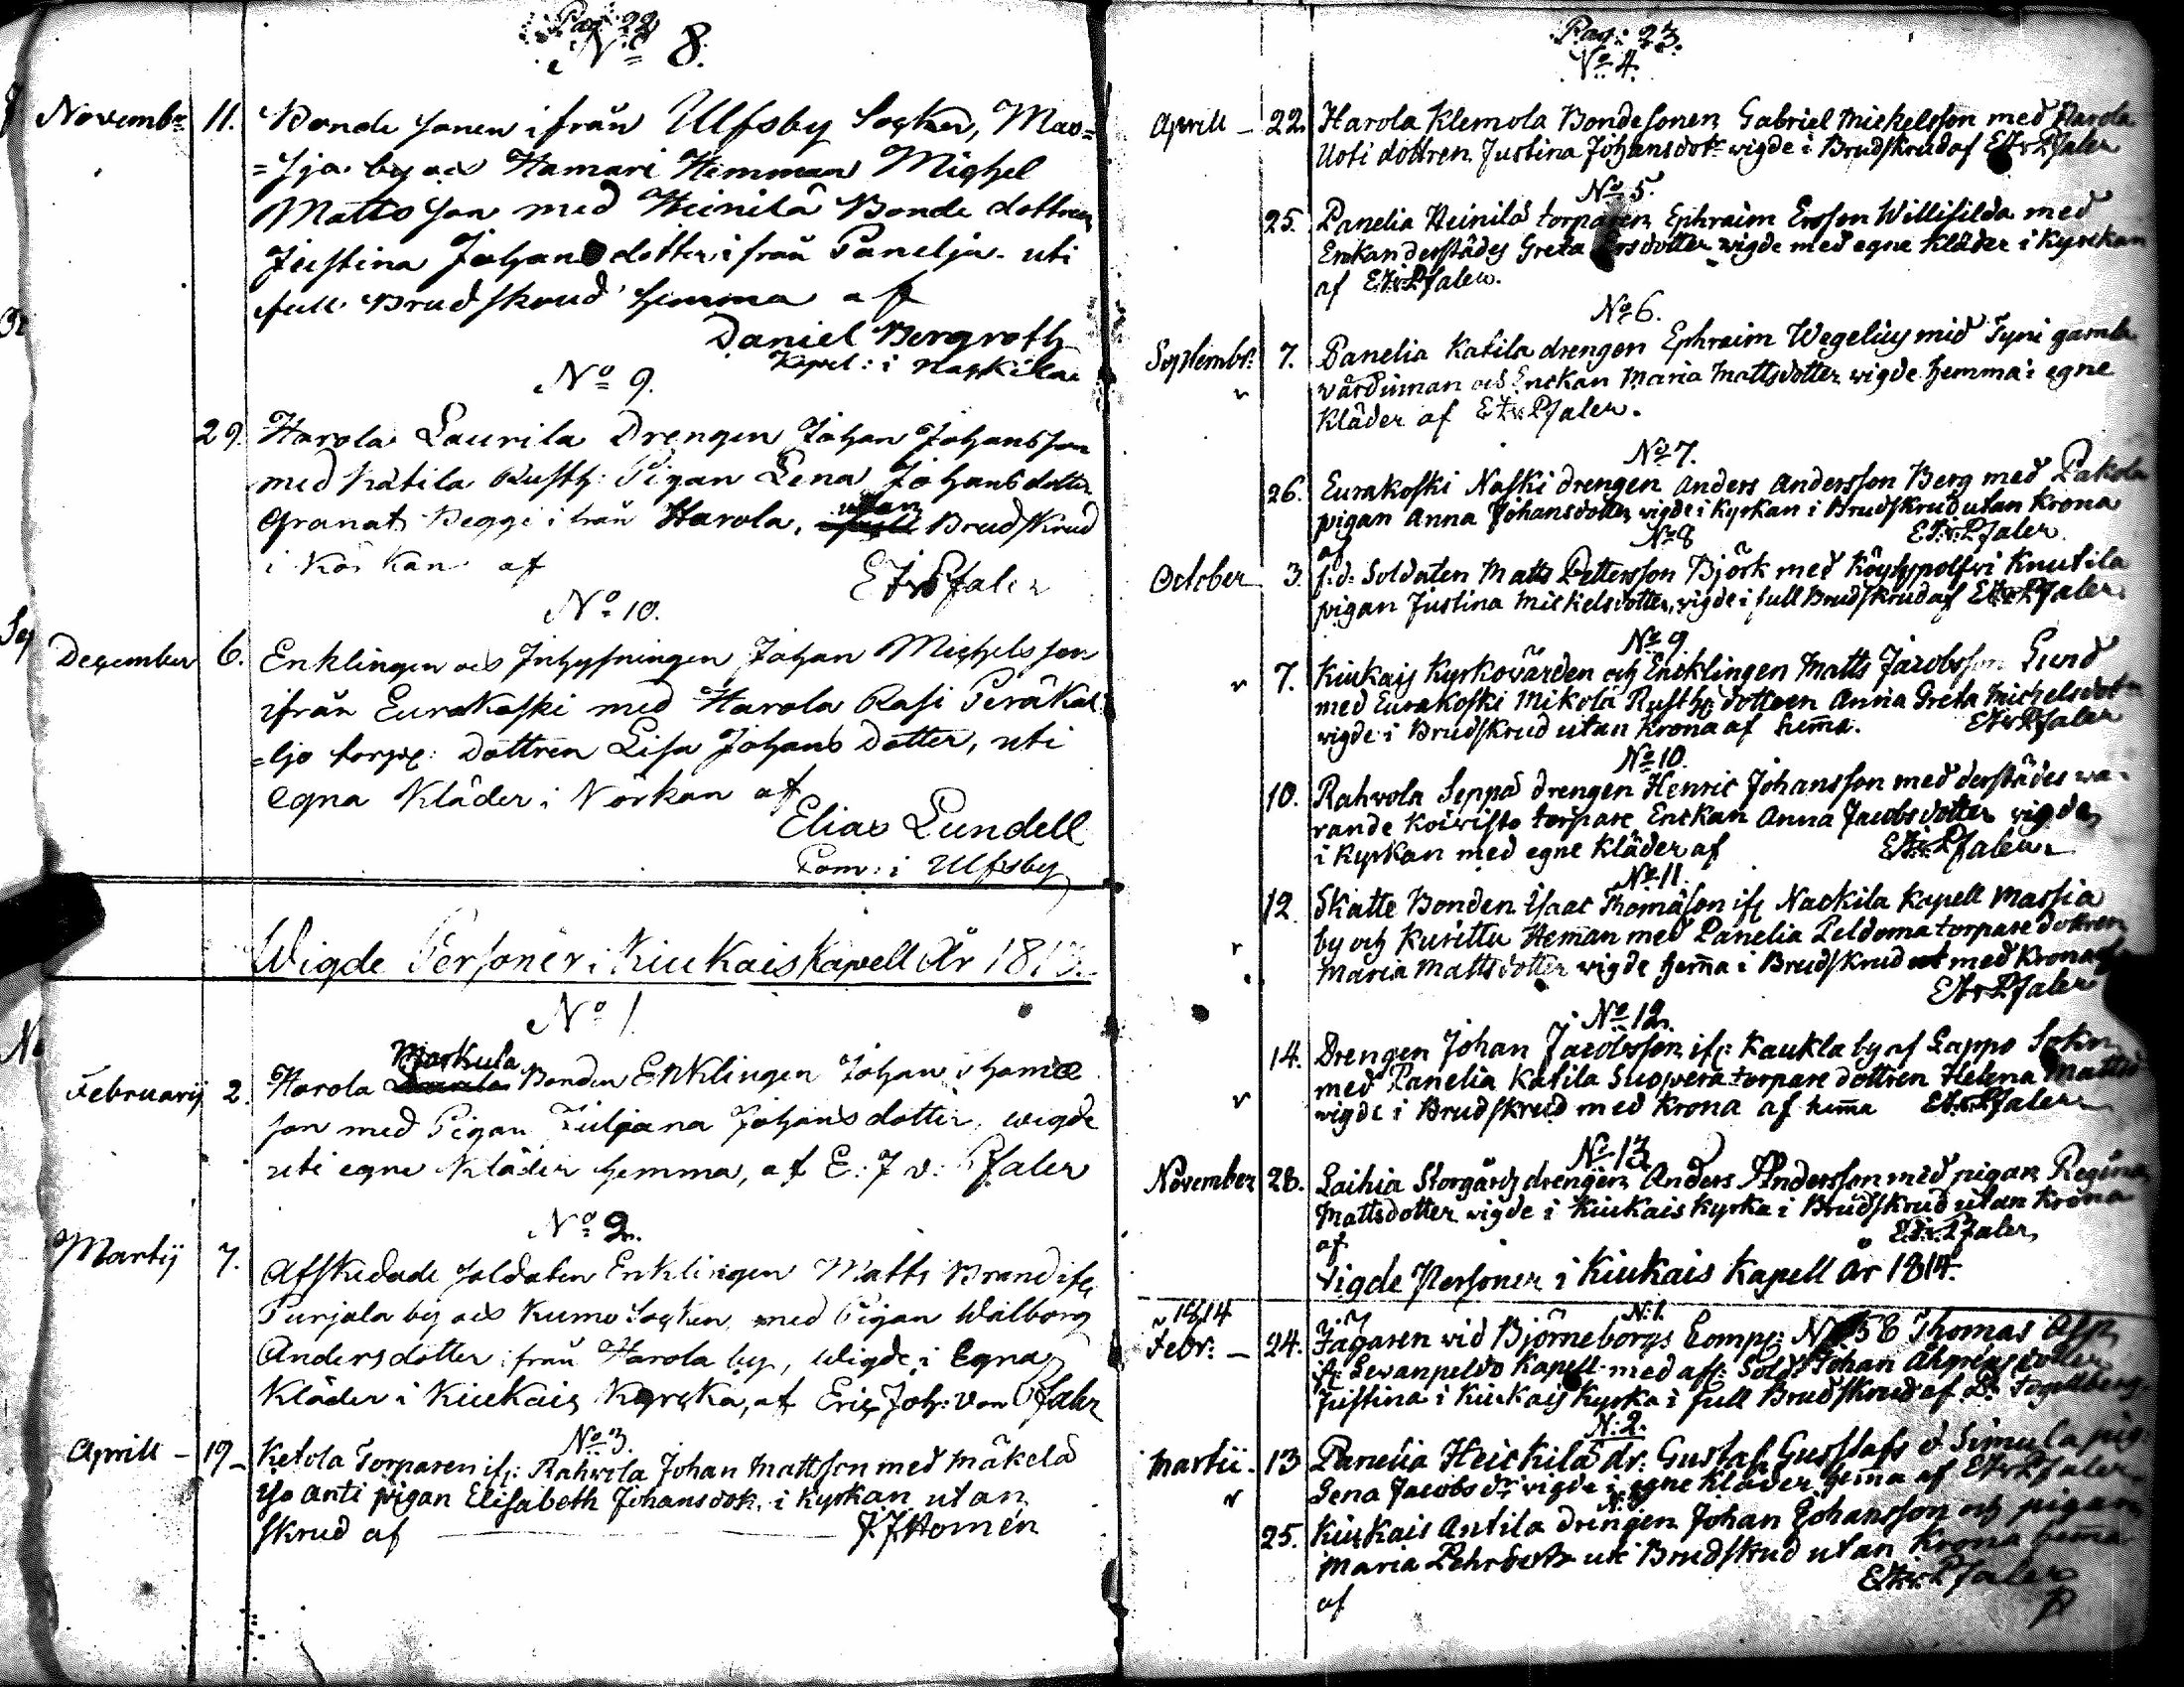 Pag: 22
No 8.
Novembr. 11. Bonde sonen ifrån Ulfsby Socken, Mas=
=sja by och Hamari Hemman Michel
Matts son med Heinilä Bonde dottren
Justina Johans dotter ifrån Panelja uti
full Brudskrud hemma af
Daniel Bergroth
Kapel: i Nackila
No 9.
29. Harola Laurila Drengen Johan Johansson
med Katila Rusth: Pigan Lena Johansdotter
Granat Begge ifrån Harola, utan Brudskrud
i Körkan af E J v Pfaler
No 10.
December 6. Enklingen och Inhysningen Johan Michelsson
ifrån Eurakoski med Harola Rasi Peräkal
=ljo torp: dottren Lisa Johans dotter, uti
egna Kläder i Körkan af
Elias Lundell
Com: i Ulfsby
Wigde Personer i Kiukais Kapell År 1813.
No 1.
Februarij 2. Harola Markula Bonden Enklingen Johan
son med Pigan Juliana Johans dotter, wigde
uti egne Kläder hemma, af E: J v: Pfaler
No 2.
Martij 7. Afskedade soldaten Enklingen Matts Brand ifr
Purjala by och Kumo Socken med Pigan Walborg
Andersdotter ifrån Harola by, Wigde i Egna
Kläder i Kiukais Kyrcka, af Eric Joh: von Pfaler
No 3.
Aprill - 19 Ketola Torparen ifr: Rahvola Johan Mattsson med Mäkelä
Yso Anti pigan Elisabeth Johansdotr. i Kyrkan utan
skrud af J. J Homén
Pag: 23.
No 4.
Aprill - 22. Harola Klemola Bondesonen Gabriel Mickelsson med Harola
Uoti dottren Justina Johansdotr wigde i Brudskrud af EJvPfaler
No 5.
25. Panelia Heinilä torparen Ephraim Ersson Willisilda med
Enkan derstädes Greta Ersdotter wigde med egne Kläder i Kyrckan
af EJvPfaler.
No 6.
Septembr: 7. Panelia Katila drengen Ephraim Wegelius med Tyni gamla
wärdinnan och Enckan Maria Mattsdotter wigde hemma i egne
Kläder af EJvPfaler.
No 7.
26. Eurakoski Naski drengen Anders Andersson Berg med Pakola
pigan Anna Johansdotter wigde i Kyrkan i Brudskrud utan Krona
af E.J.v.Pfaler.
No 8
October 3. f.d. Soldaten Matts Pettersson Björk med Köyhypolfvi Knutila
pigan Justina Mickelsdotter, wigde i full Brudskrud af EJvPfaler.
No 9.
7. Kiukais Kyrkovärden och Encklingen Matts Jacobsson Lund
med Eurakoski Mikola Rusth: dottren Anna Greta Michelsdotr
wigde i Brudskrud utan Krona af hema. EJvPfaler
No 10.
10. Rahvola Seppä drengen Henric Johansson med derstädes wa-
rande Koivisto torpare Enckan Anna Jacobsdotter wigde
i Kyrkan med egne Kläder af EJvPfaler.
No 11.
12. Skatte Bonden Isaac Thomasson ifr Nackila Kapell Massia
by och Kurittu Heman med Panelia Peldoma torpare dottren
Maria Mattsdotter wigde hema i Brudskrud med Krona af
EJvPfaler
No 12.
14. Drengen Johan Jacobsson ifr: Kaukla by af Lappo Sokn
med Panelia Katila Suopera torpare dottren Helena Mattsd
wigde i Brudskrud med Krona af hema EJvPfaler
No 13.
November 28. Laihia Storgårds drengen Anders Andersson med pigan Regina
Mattsdotter wigde i Kiukais Kyrka i Brudskrud utan Krona
af E.J.v.Pfaler
Vigde Personer i Kiukais Kapell år 1814.
1814 N: 1.
Febr: - 24. Jägaren vid Björneborgs Comp: No 58 Thomas Alp
ifr: Levanpeldo Kapell med aff: Sold: Johan Ahgrens dotter
Justina i Kiukais Kyrka i full Brudskrud af
N: 2.
Martii. 13 Panelia Heickilä dr: Gustaf Gustafs o Simula pig:
Lena Jacobs dr wigde i egne Kläder hema af EJvPfaler.
N. 3.
25. Kiukais Antila drengen Johan Johansson och pigan
Maria Pehrsdotr uti Brudskrud utan Krona hema
af EJvPfaler